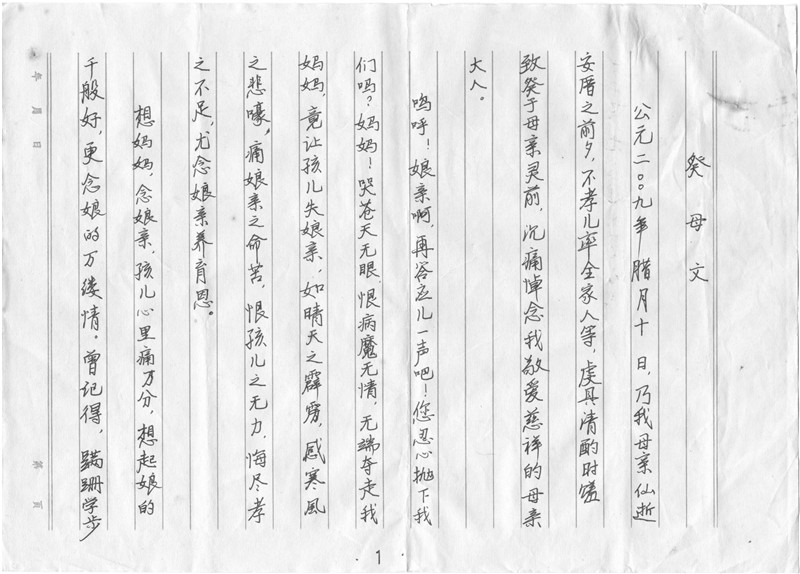 癸母文
公元二00九年腊月十日，乃我母亲仙逝
安厝之前夕，不孝儿率全家人等，虔具清酌时馐
致癸于母亲灵前，沉痛悼念我敬爱慈祥的母亲
大人。
呜呼！娘亲啊，再答应儿一声吧！您忍心抛下我
们吗？妈妈！哭苍天无眼，恨病魔无情，无端夺走我
妈妈，竟让孩儿失娘亲，如晴天之霹雳，感寒風
之悲嚎，痛娘亲之命苦，恨孩儿之无力，悔尽孝
之不足，尤念娘亲养育恩。
想妈妈，念娘亲，孩儿心里痛万分，想起娘的
千般好，更念娘的万缕情。曾记得，蹒跚学步
年月日
第 页
1